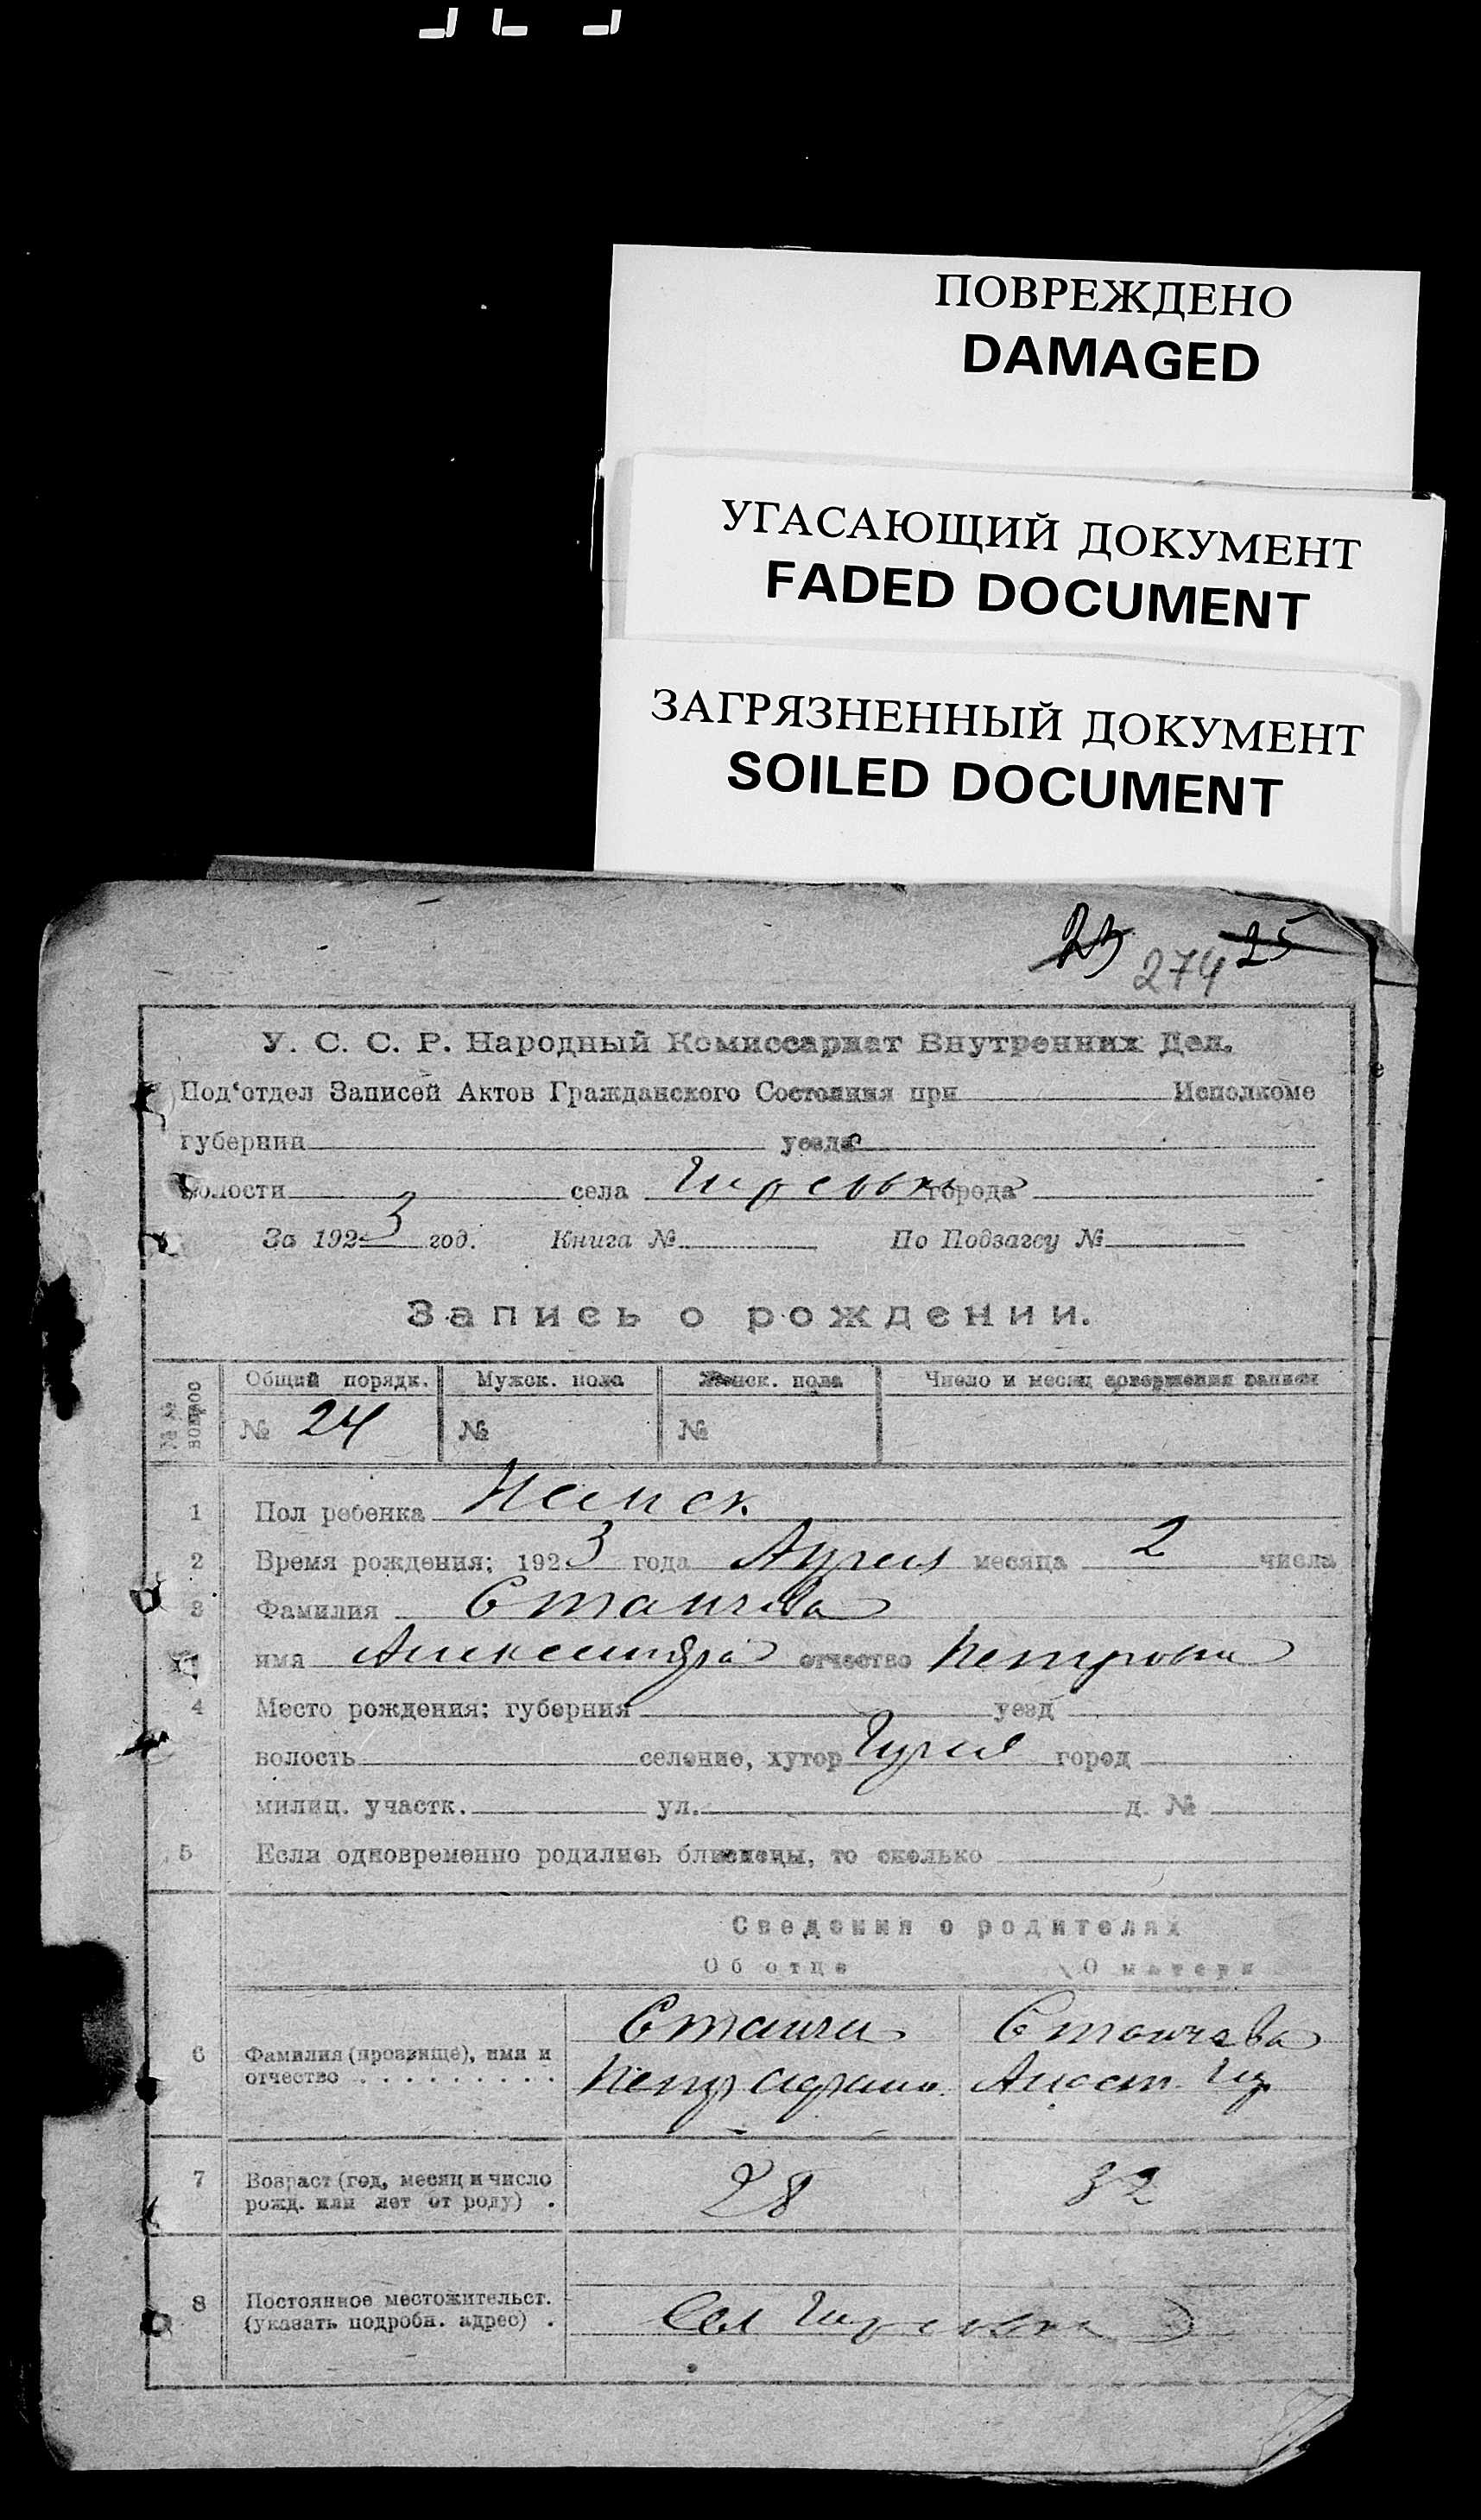 ПОВРЕЖДЕНО
DAMAGED
УГАСАЮЩИЙ ДОКУМЕНТ
FADED DOCUMENT
ЗАГРЯЗНЕННЫЙ ДОКУМЕНТ
SOILED DOCUMENT
274 25
У. С. С. Р. Народный Комиссариат Внутренних Дел.
Под‘отдел Записей Актов Гражданского Состояния при Исполкоме
губернии уезда
волости села города
За 1923 год. Книга № По Подзагсу №
Запись о рождении.
№№ вопрос Общий порядк. Мужск. пола Женск. пола Число и месяц совершения записи
№ 24 № №
1 Пол ребенка
2 Время рождения: 1923 года Апреля месяца 2 числа
3 Фамилия Станчева
имя Александра отчество Петровна
4 Место рождения: губерния уезд
волость селение, хутор город
милиц. участк. ул. д. №
5 Если одновременно родились близнецы, то сколько
Сведения о родителях
Об отце О матери
6 Фамилия (прозвище), имя и отчество Станчев Петр Станчева Анаст.
7 Возраст (год, месяц и число рожд. или лет от роду) 28 32
8 Постоянное местожительст. (указать подробн. адрес) Сел